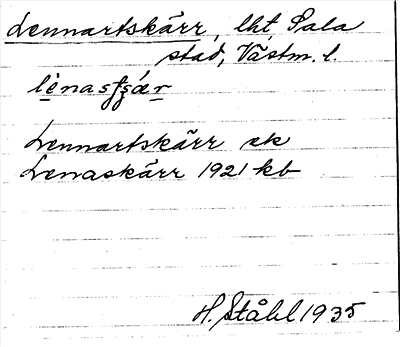 Lennartskärr, lht, Sala
stad, Västm. l.
Lennartskärr ek
Lenaskärr 1921 kb
H. Ståhl 1935